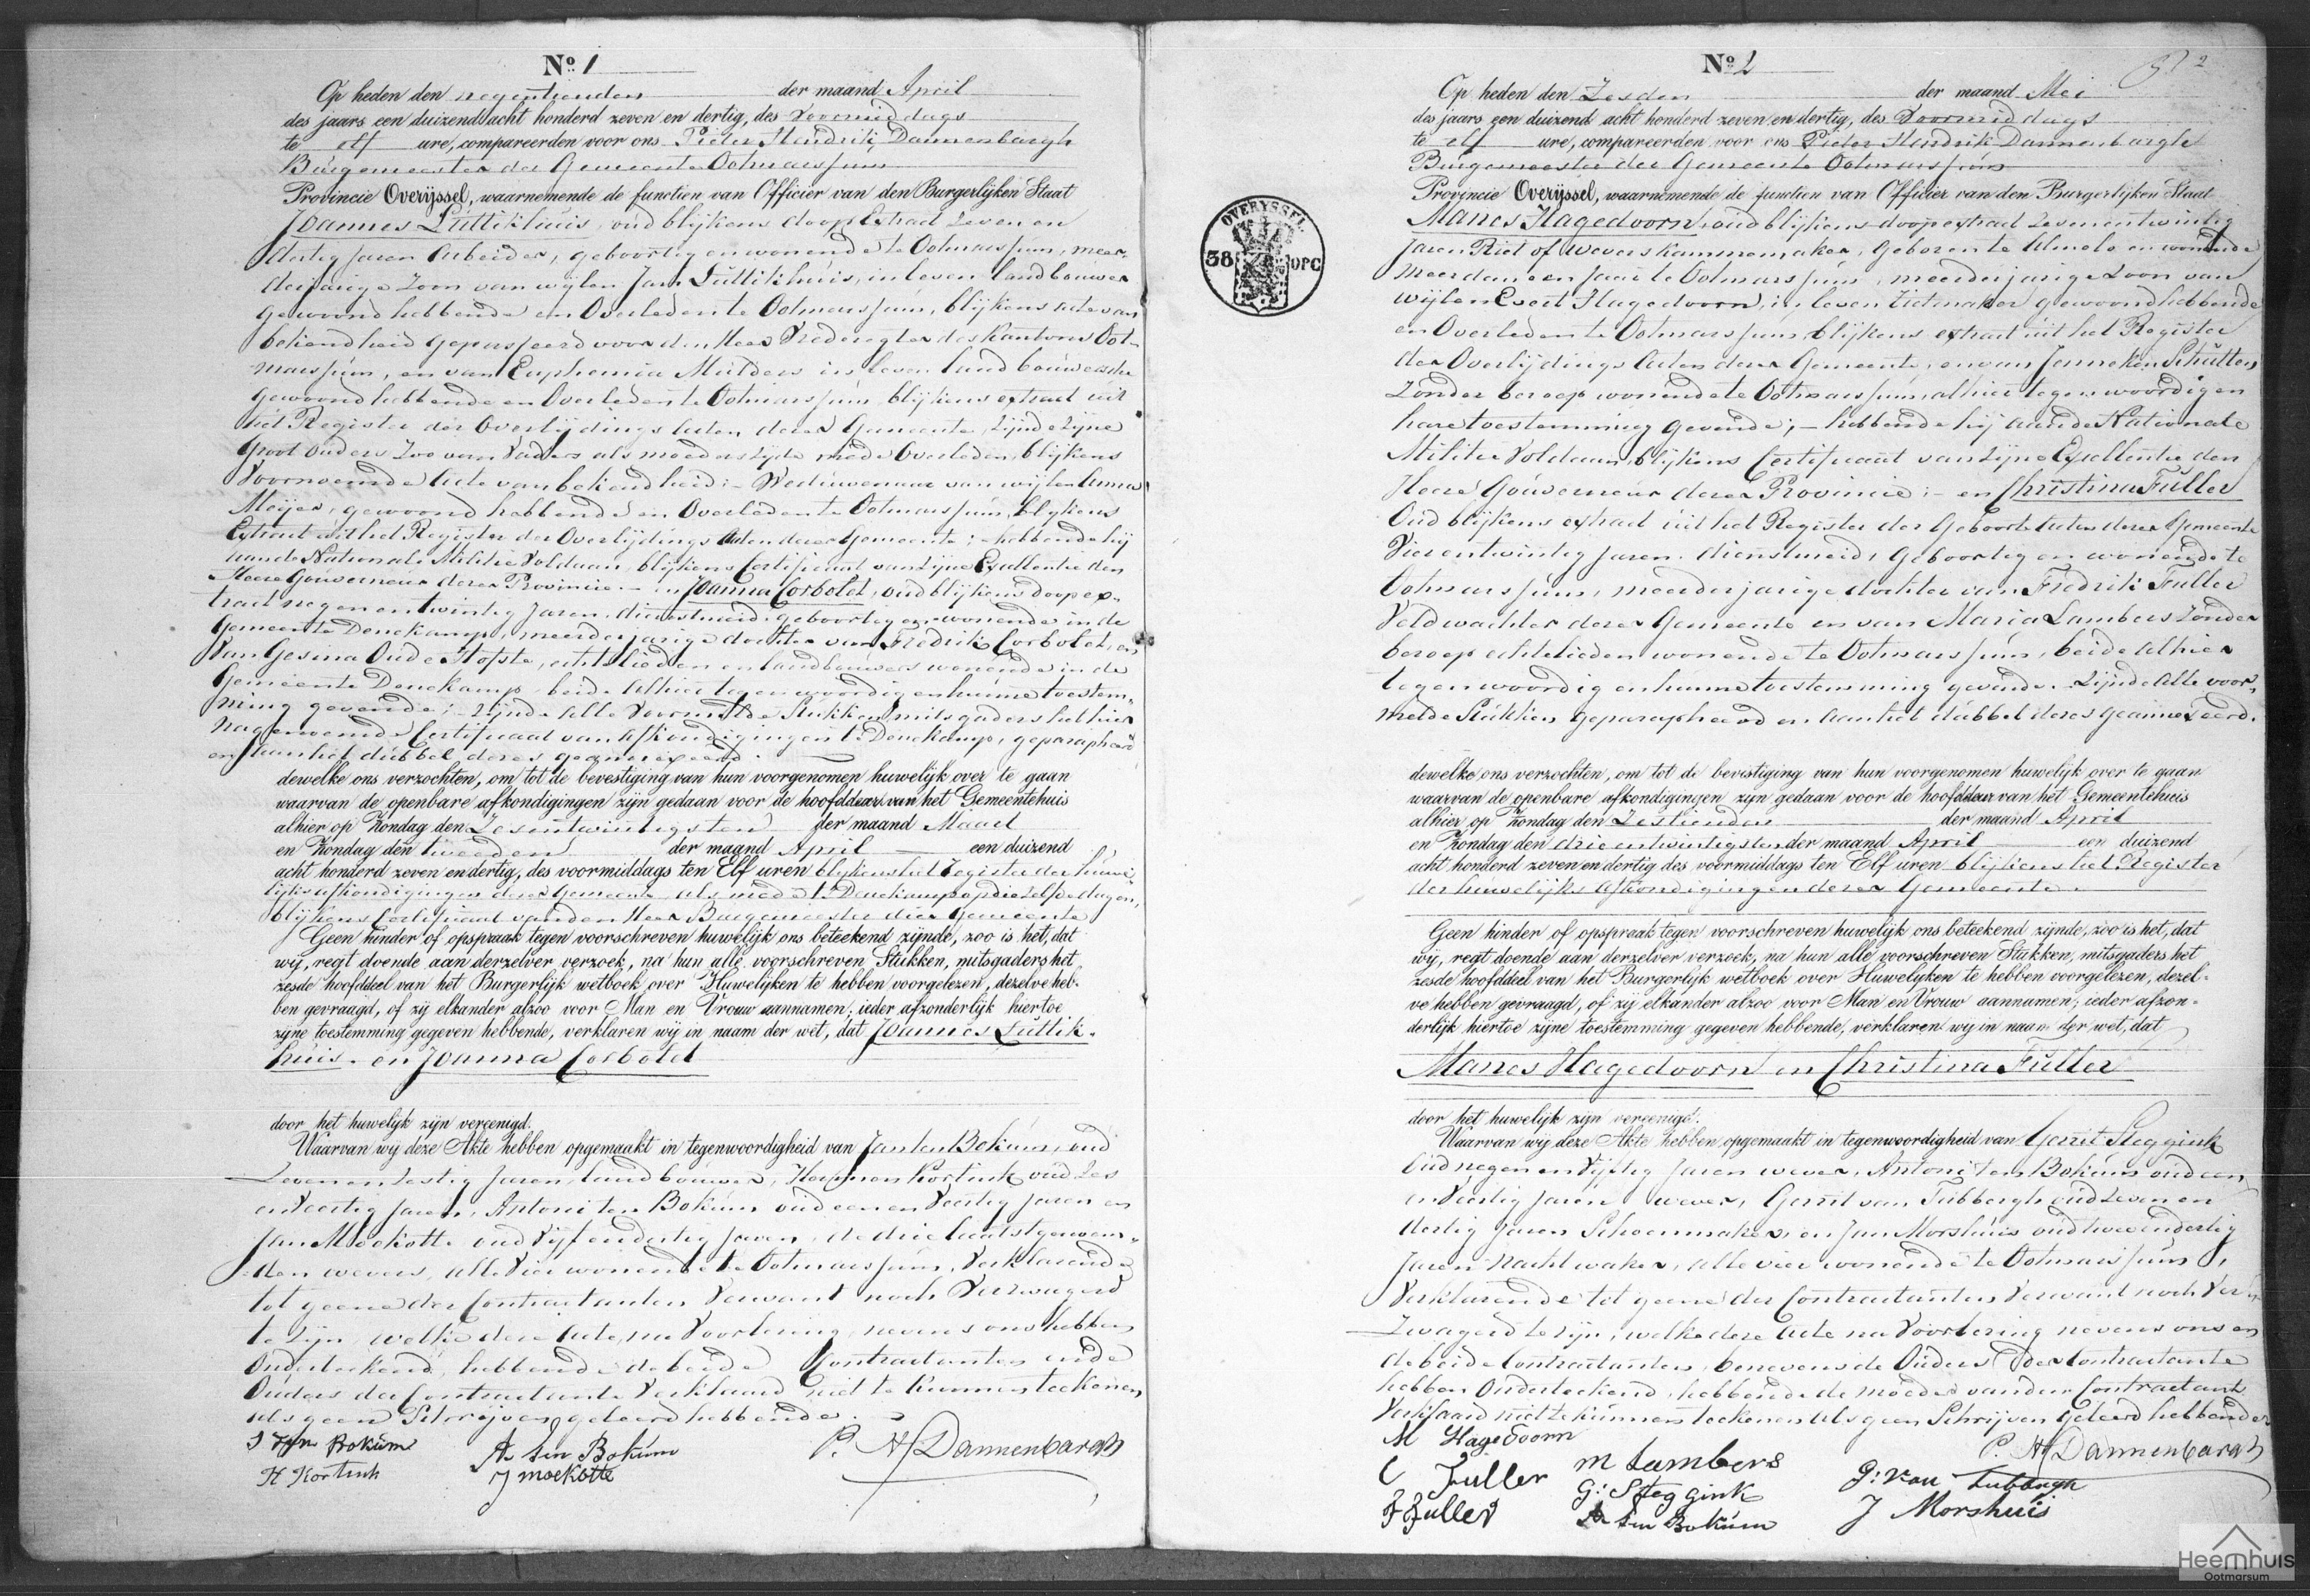 Nº 1
Op heden den negentienden der maand April
des jaars een duizend acht honderd zeven en dertig, des Voormiddags
te elf ure, compareerden voor ons Pieter Hendrik Dannenbargh
Burgemeester der Gemeente Ootmarssum
Provincie Overijssel, waarnemende de functien van Officier van den Burgerlijken Staat
Joannes Luttikhuis, oud blijkens doop Extract zeven en
dertig jaren Arbeider, geboortig en wonende te Ootmarssum, meer-
derjarige Zoon van wijlen Jan Luttikhuis, in leven landbouwer
gewoond hebbende en Overleden te Ootmarssum, blijkens acte van
bekendheid gepasseerd voor den Heer Vrederegter des Kantons Oot-
marssum, en van Euphemia Mulders in leven landbouwersche
gewoond hebbende en Overleden te Ootmarssum, blijkens extract uit
het Register der Overlijdings Acten dezer Gemeente, zijnde zijne
Groot Ouders zoo van Vaders als moeders zyde mede Overleden, blijkens
Voornoemde Acte van bekendheid; - Weduwenaar van wijlen Anna
Meijer, gewoond hebbende en Overleden te Ootmarssum, blijkens
Extract uit het Register der Overlijdings Acten dezer Gemeente; - hebbende hij
aan de Nationale Militie Voldaan, blijkens Certificaat van zijne Excellentie den
Heere Gouverneur dezer Provincie. - en Joanna Corbolet, oud blijkens doop ex-
tract negen en twintig Jaren, dienstmeid, geboortig en wonende in de
Gemeente Denekamp, meerderjarige dochter van Fredrik Corbolet, en
Van Gesina Oude Hofste, echtelieden en landbouwers wonende in de
Gemeente Denekamp beide alhier tegenwoordig en hunne toestem-
ming gevende; - zijnde alle Voormelde Stukken mitsgaders het hier
nagenoemde Certificaat van Afkondigingen te Denekamp, geparapheerd
en aan het dubbel dezes geannexeerd.
dewelke ons verzochten, om tot de bevestiging van hun voorgenomen huwelijk over te gaan
waarvan de openbare afkondigingen zijn gedaan voor de hoofddeur van het Gemeentehuis
alhier op Zondag den Zesentwintigsten der maand Maart
en Zondag den tweeden der maand April een duizend
acht honderd zeven en dertig, des voormiddags ten Elf uren blijkens het Register der huwe-
lijks afkondigingen dezer Gemeente, als mede te Denekamp op die zelfde dagen,
blijkens Certificaat van den Heer Burgemeester dier Gemeente
Geen hinder of opspraak tegen voorschreven huwelijk ons beteekend zijnde, zoo is het, dat
wij, regt doende aan derzelver verzoek, na hun alle voorschreven Stukken, mitsgaders het
zesde hoofddeel van het Burgerlijk wetboek over Huwelijken te hebben voorgelezen, dezelve heb-
ben gevraagd, of zij elkander alzoo voor Man en Vrouw aannamen; ieder afzonderlijk hiertoe
zijne toestemming gegeven hebbende, verklaren wij in naam der wet, dat Joannes Luttik-
huis en Joanna Corbolet
door het huwelijk zijn vereenigd.
Waarvan wij deze Akte hebben opgemaakt in tegenwoordigheid van Jan ten Bokum, oud
Zeven en Zestig Jaren, landbouwer, Hermen Kortink oud Zes
en Veertig Jaren, Antoni ten Bokum oud een en Veertig Jaren en
Jan Moekotte oud Vijf en dertig Jaren, de drie laatstgenoem-
den wevers, alle Vier wonende te Ootmarssum, Verklarende
tot geene der Contractanten Verwant noch Verzwagerd
te zijn welke deze Acte, na Voorlezing, nevens ons hebben
Onderteekend, hebbende de beide Contractanten en de
Ouders der Contractante Verklaard niet te kunnen teekenen
als geen Schrijven geleerd hebbende.
J ten Bokum
A ten Bokum
P. H Dannenbargh
H Kortink
J moekotte
Nº 2
2
Op heden den Zesden der maand Mei
des jaars een duizend acht honderd zeven en dertig, des Voormiddags
te elf ure, compareerden voor ons Pieter Hendrik Dannenbargh
Burgemeester der Gemeente Ootmarssum
Provincie Overijssel, waarnemende de functien van Officier van den Burgerlijken Staat
OVERYSSEL.
38 OPC
Manes Hagedoorn, oud blijkens doop extract zevenentwintig
Jaren Riet of Weverskammemaker, Geboren te Almelo en wonende
meer dan een Jaar te Ootmarssum, meerderjarige Zoon van
wijlen Evert Hagedoorn, in leven rietmaker gewoond hebbende
en Overleden te Ootmarssum, blijkens extract uit het Register
der Overlijdings Acten dezer Gemeente, en van Janneken Schutten
Zonder beroep wonende te Ootmarssum, alhier tegenwoordig en
hare toestemming gevende; - hebbende hij aan de Nationale
Militie Voldaan, blijkens Certificaat van zijne Excellentie den
Heere Gouverneur dezer Provincie; - en Christina Fuller
Oud blijkens extract uit het Register der Geboorte Acten dezer Gemeente
Vier en twintig Jaren. dienstmeid, Geboortig en wonende te
Ootmarssum, meerderjarige dochter van Fredrik Fuller
Veldwachter dezer Gemeente en van Maria Lambers Zonder
beroep echtelieden wonende te Ootmarssum, beide alhier
tegenwoordig en hunne toestemming gevende. - Zijnde alle voor-
melde Stukken geparapheerd en aan het dubbel dezes geannexeerd.
dewelke ons verzochten, om tot de bevestiging van hun voorgenomen huwelijk over te gaan
waarvan de openbare afkondigingen zijn gedaan voor de hoofddeur van het Gemeentehuis
alhier op Zondag den Zestienden der maand April
en Zondag den drieentwintigsten der maand April een duizend
acht honderd zeven en dertig des voormiddags ten Elf uren blijkens het Register
der huwelijks afkondigingen dezer Gemeente.
Geen hinder of opspraak tegen voorschreven huwelijk ons beteekend zijnde, zoo is het, dat
wij, regt doende aan derzelver verzoek, na hun alle voorschreven Stukken, mitsgaders het
zesde hoofddeel van het Burgerlijk wetboek over Huwelijken te hebben voorgelezen, dezel-
ve hebben gevraagd, of zij elkander alzoo voor Man en Vrouw aannamen; ieder afzon-
derlijk hiertoe zijne toestemming gegeven hebbende, verklaren wij in naam der wet, dat
Manes Hagedoorn en Christina Fuller
door het huwelijk zijn vereenigd.
Waarvan wij deze Akte hebben opgemaakt in tegenwoordigheid van Gerrit Steggink
Oud negen en Vijftig Jaren wever, Antoni ten Bokum oud een
en Veertig Jaren wever, Gerrit van Tubbergh oud Zeven en
dertig Jaren Schoenmaker, en Jan Morshuis oud tweeendertig
Jaren Nachtwaker, alle vier wonende te Ootmarssum,
Verklarende tot geene der Contractanten Verwant noch Ver-
Zwagerd te zijn, welke deze Acte na Voorlezing nevens ons en
de beide Contractanten, benevens de Ouders der Contractante
hebben Onderteekend, hebbende de moeder van den Contractant
Verklaard niet te kunnen teekenen als geen Schrijven Geleerd hebbende
M Hagedoorn
P. H Dannenbargh
C Fuller
m Lambers
G: van Tubbergh
F Fuller
G: Steggink
J Morshuis
A ten Bokum
Heemhuis
Ootmarsum